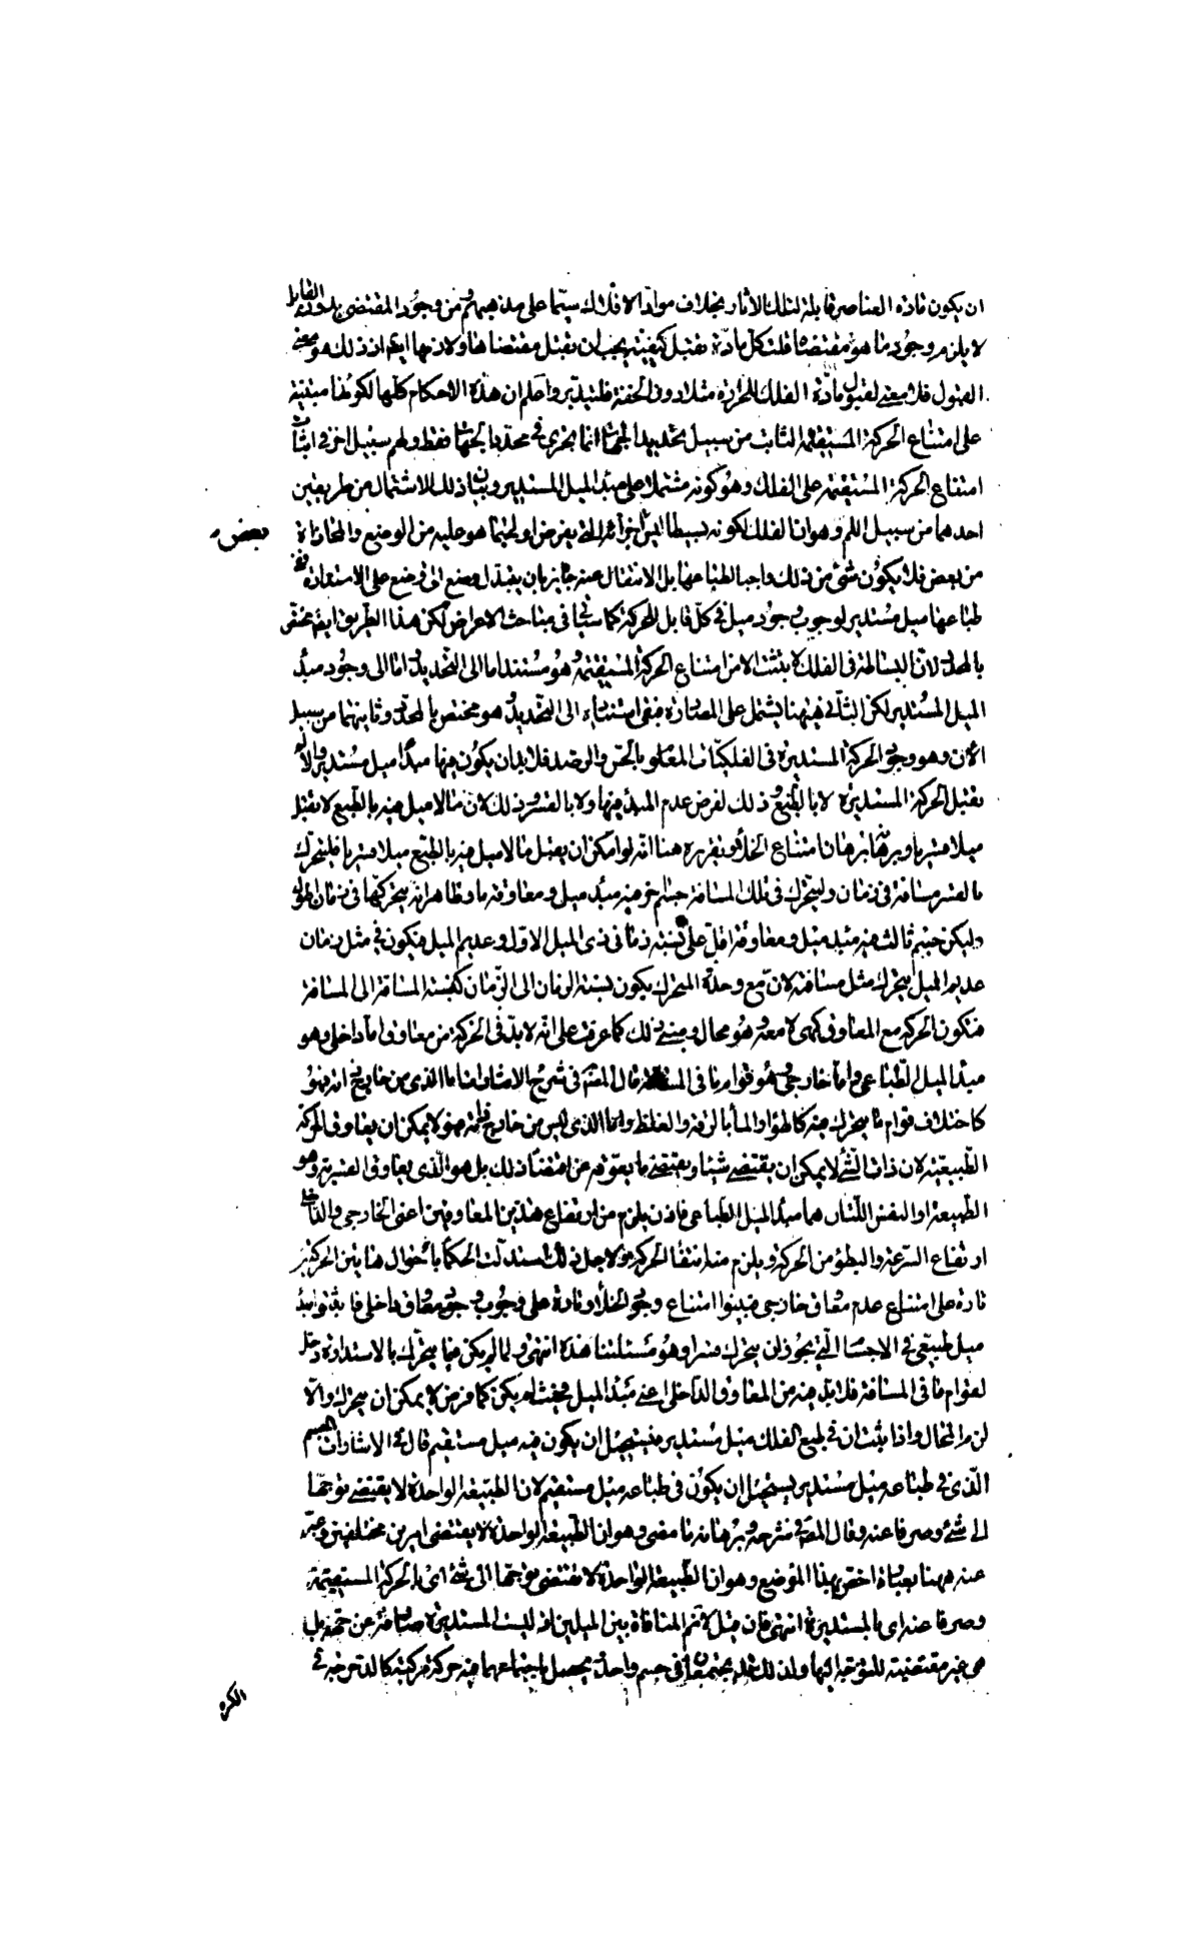 ان يكون مادة العناصر قابلة لتلك الاثار بخلاف مواد الافلاك سيما على مذهبهم ومن وجود المقتضى بدون القابل
لا يلزم وجود ما هو مقتضاه قلت كل مادة تقبل كيفية يجب ان تقبل مقتضاها ولازمها ايضا اذ ذلك هو معنى
القبول فلا معنى لقبول مادة الفلك للحرارة مثلا دون الخفة فليتدبر واعلم ان هذه الاحكام كلها لكونها مبتنية
على امتناع الحركة المستقيمة الثابت من سبيل تحديد الجهات انما يجرى فى محدد الجهات فقط ولهم سبيل اخر فى اثبات
امتناع الحركة المستقيمة على الفلك وهو كونه مشتملا على مبدا الميل المستدير وبيان ذلك الاشتمال من طريقين
احدهما من سبيل اللم وهو ان الفلك لكونه بسيطا ليس اجزائه التى يفرض اولى بما هو عليه من الوضع والمحاذاة
بعض
من بعض فلا يكون شئ من ذلك واجبا لطباعها بل الانتقال عنه جايز بان يتبدل وضع الى وضع على الاستدارة ففى
طباعها ميل مستدير لوجوب وجود ميل فى كل قابل للحركة كما سياتى فى مباحث الاعراض لكن هذا الطريق ايضا مختص
بالمحدد لان البساطة فى الفلك لا يثبت الا من امتناع الحركة المستقيمة وهو مستند اما الى التحديد او اما الى وجود مبدا
الميل المستدير لكن الثانى هيهنا يشتمل على المصادرة فبقى استناده الى التحديد وهو مختص بالمحدد وثانيهما من سبيل
الان وهو وجود الحركة المستديرة فى الفلكيات المعلوم بالحس والرصد فلا بد ان يكون فيها مبدا ميل مستدير والا لم
يقبل الحركة المستديرة لا بالطبع وذلك لفرض عدم المبدا فيها ولا بالقسر وذلك لان ما لا ميل فيه بالطبع لا يقبل
ميلا قسريا وبرهانه برهان امتناع الخلا وتقريره هنا انه لو امكن ان يقبل ما لا ميل فيه بالطبع ميلا قسريا فليتحرك
بالقسر مسافة فى زمان وليتحرك فى تلك المسافة جسم اخر فيه مبدا ميل ومعاوقة ما وظاهر انه يتحركها فى زمان اطول
وليكن جسم ثالث فيه مبدا ميل ومعاوقة اقل على نسبة زمانى ذى الميل الاول وعديم الميل فيكون فى مثل زمان
عديم الميل يتحرك مثل مسافته لان مع وحدة المتحرك يكون نسبة الزمان الى الزمان كنسبة المسافة الى المسافة
فتكون الحركة مع المعاوق كهى لا معه وهو محال ومبنى ذلك كما عرفت على انه لا بد فى الحركة من معاوق اما داخلى وهو
مبدا الميل الطباعى واما خارجى وهو قوام ما فى المسافة قال المص فى شرح الاشارات اما الذى من خارج انه فهو
كاختلاف قوام ما يتحرك فيه كالهواء والماء بالرقة والغلظ واما الذى ليس من خارج فهو لا يمكن ان يعاوق الحركة
الطبيعية لان ذات الشئ لا يمكن ان يقتضى شيئا ويقتضى ما يعوقه عن اقتضاء ذلك بل هو الذى يعاوق القسرية وهو
الطبيعة او النفس اللتان هما مبدا الميل الطباعى فاذن يلزم من ارتفاع هذين المعاوقين اعنى الخارجى والداخلى
ارتفاع السرعة والبطؤ من الحركة ويلزم منه انتفاء الحركة ولاجل ذلك استدلت الحكماء باحوال هاتين الحركتين
تارة على امتناع عدم معاوق خارجى فبينوا امتناع وجود الخلا وتارة على وجوب وجود معاوق داخلى فاثبتوا مبدا
ميل طبيعى فى الاجسام التى يجوز ان يتحرك قسرا وهو مسئلتنا هذه انتهى ولما لم يكن فيما يتحرك بالاستدارة دخل
لقوام ما فى المسافة فلا بد فيه من المعاوق الداخلى اعنى مبدا الميل وحيث لم يكن كما فرض لا يمكن ان يتحرك والا
لزم المحال واذا ثبت ان فى طبع الفلك ميل مستدير فيستحيل ان يكون فيه ميل مستقيم قال فى الاشارات الجسم
الذى فى طباعه ميل مستدير يستحيل ان يكون فى طباعه ميل مستقيم لان الطبيعة الواحدة لا يقتضى توجها
الى شئ وصرفا عنه وقال المص فى شرحه وبرهانه ما مضى وهو ان الطبيعة الواحدة لا يقتضى امرين مختلفين وعبر
عنه ههنا بعبارة اخص بهذا الموضع وهو ان الطبيعة الواحدة لا تقتضى توجها الى شئ اى بالحركة المستقيمة
وصرفا عنه اى بالمستديرة انتهى فان قيل لا نم المنافاة بين الميلين اذ ليست المستديرة صارفة عن جهة بل
هى غير مقتضية للتوجه اليها ولذلك قد يجتمعان فى جسم واحد يحصل باجتماعهما فيه حركة مركبة كالدحرجة فى
الكرة